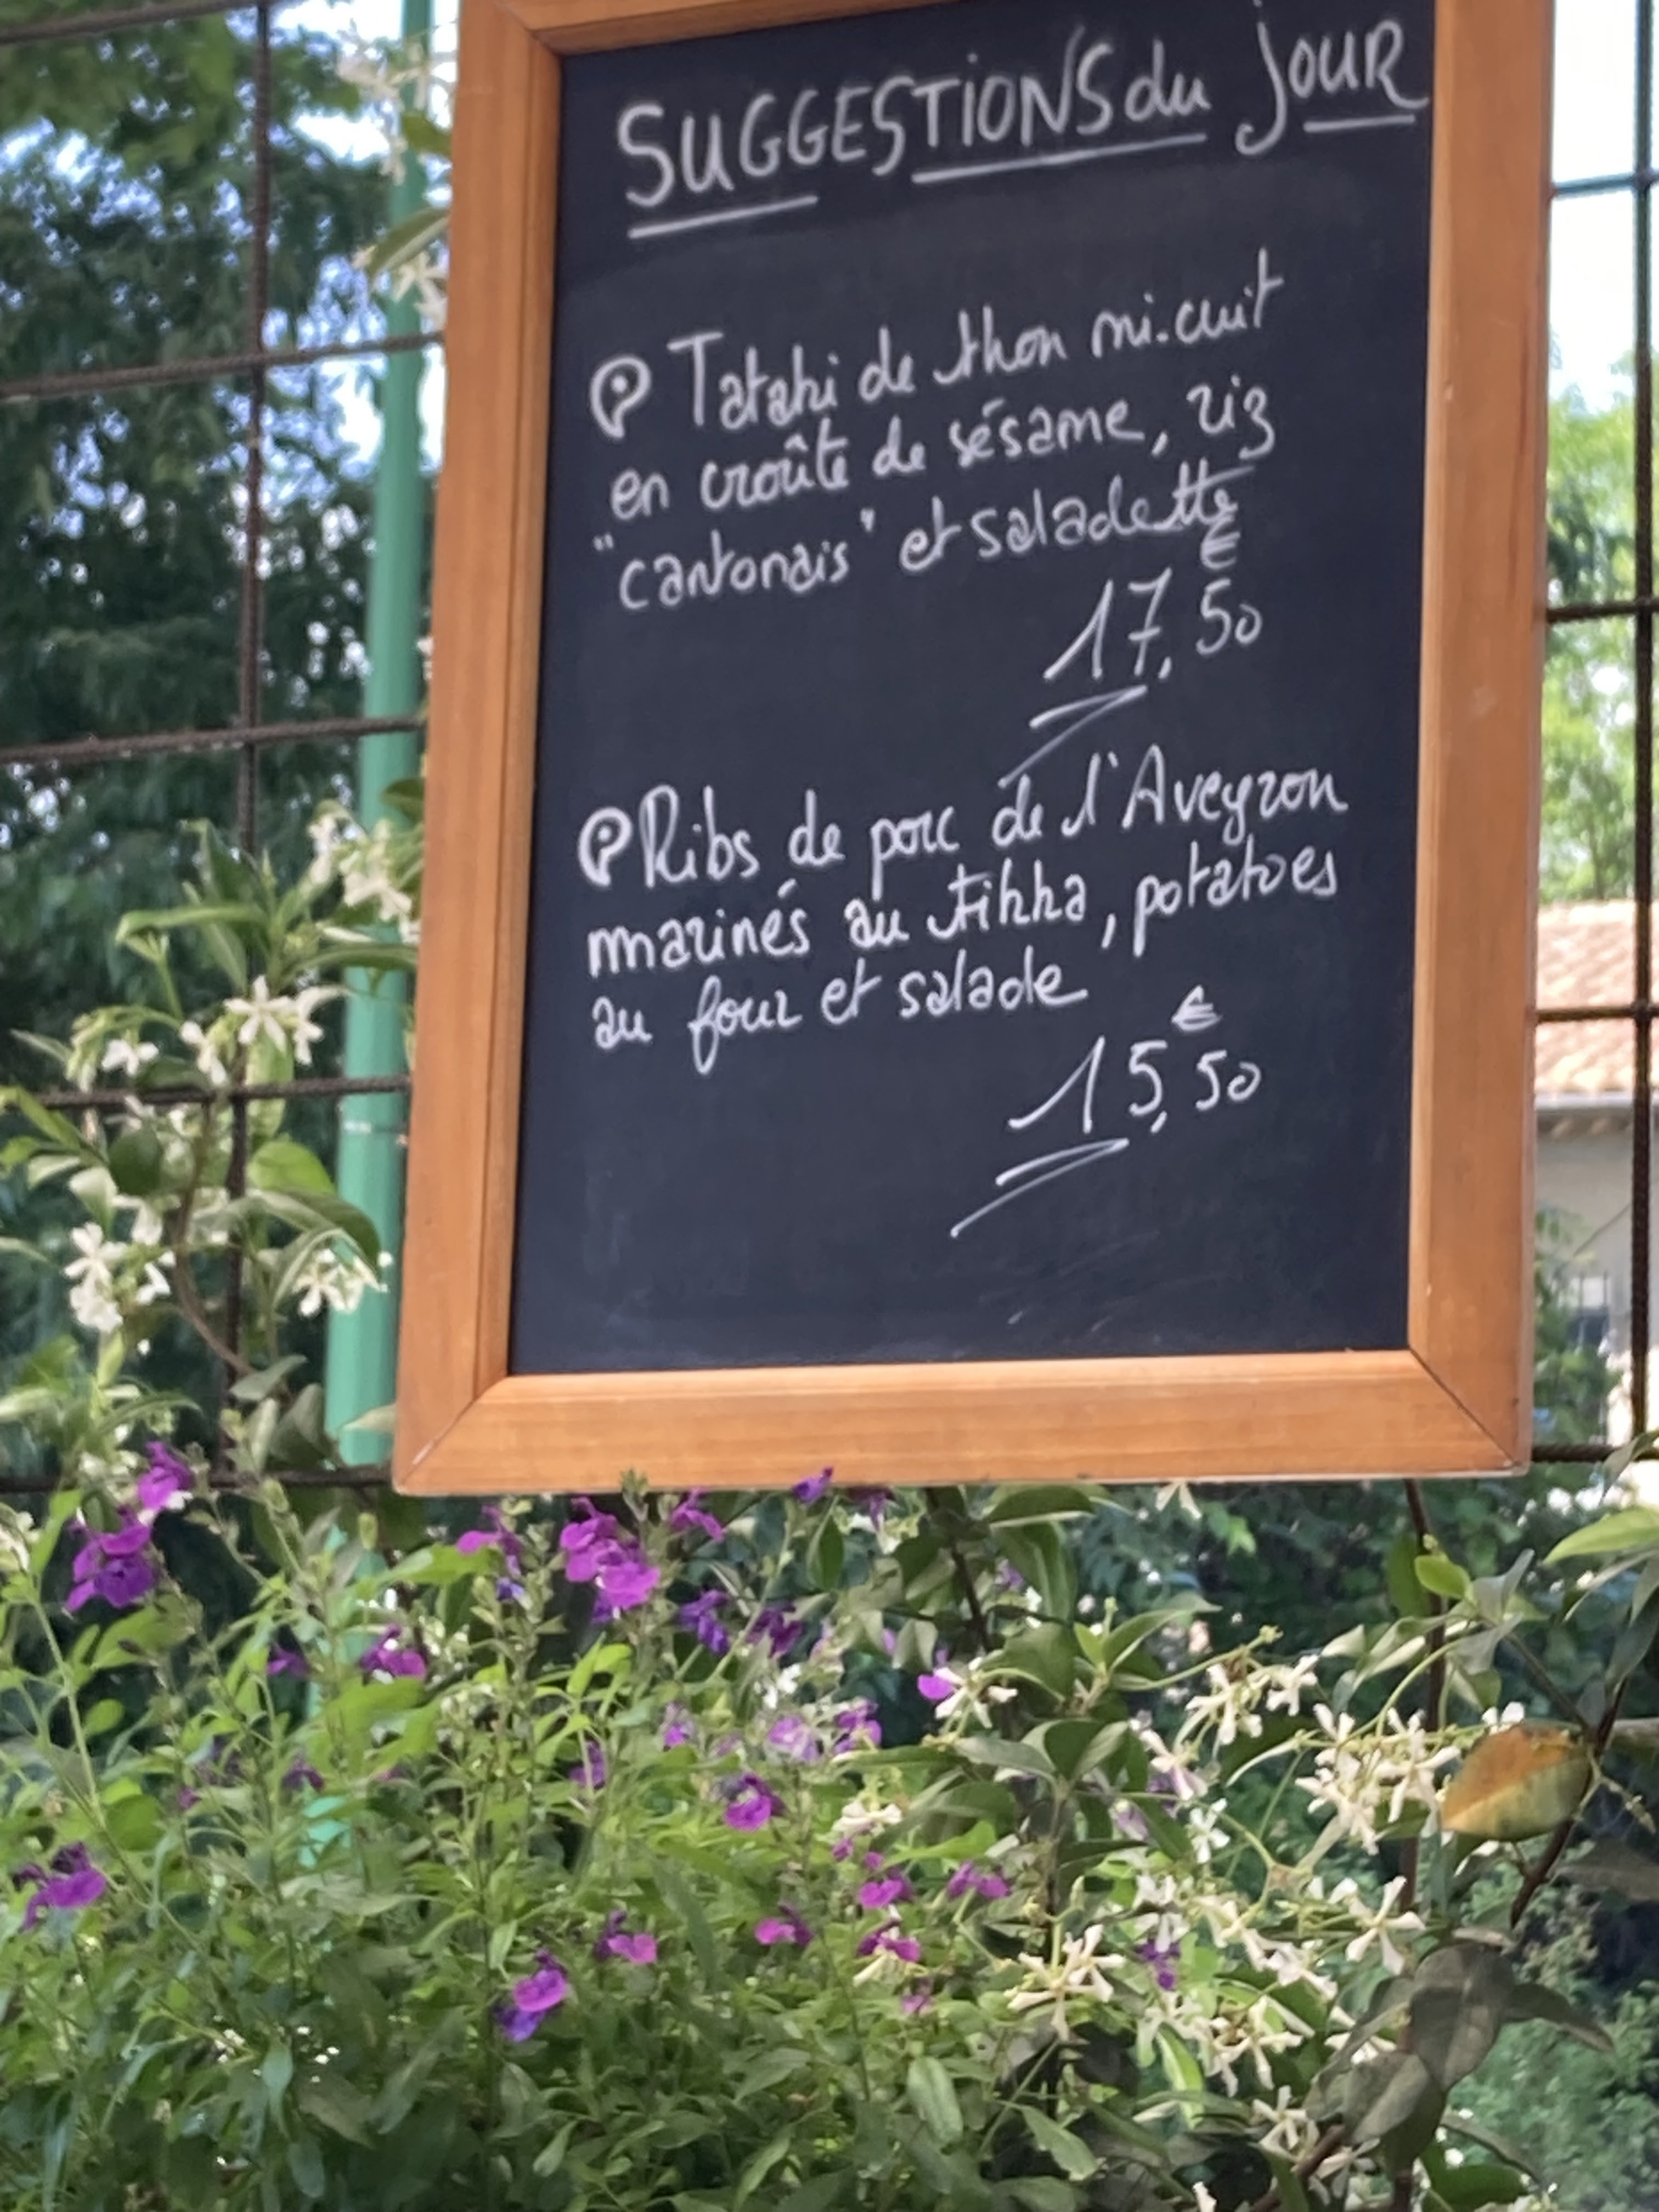 SUGGESTIONS du JOUR
Tataki de thon mi-cuit
en croûte de sésame, riz
"cantonais" et saladette
€
17,50
Ribs de porc de l'Aveyron
marinés au tikka, potatoes
au four et salade
€
15,50